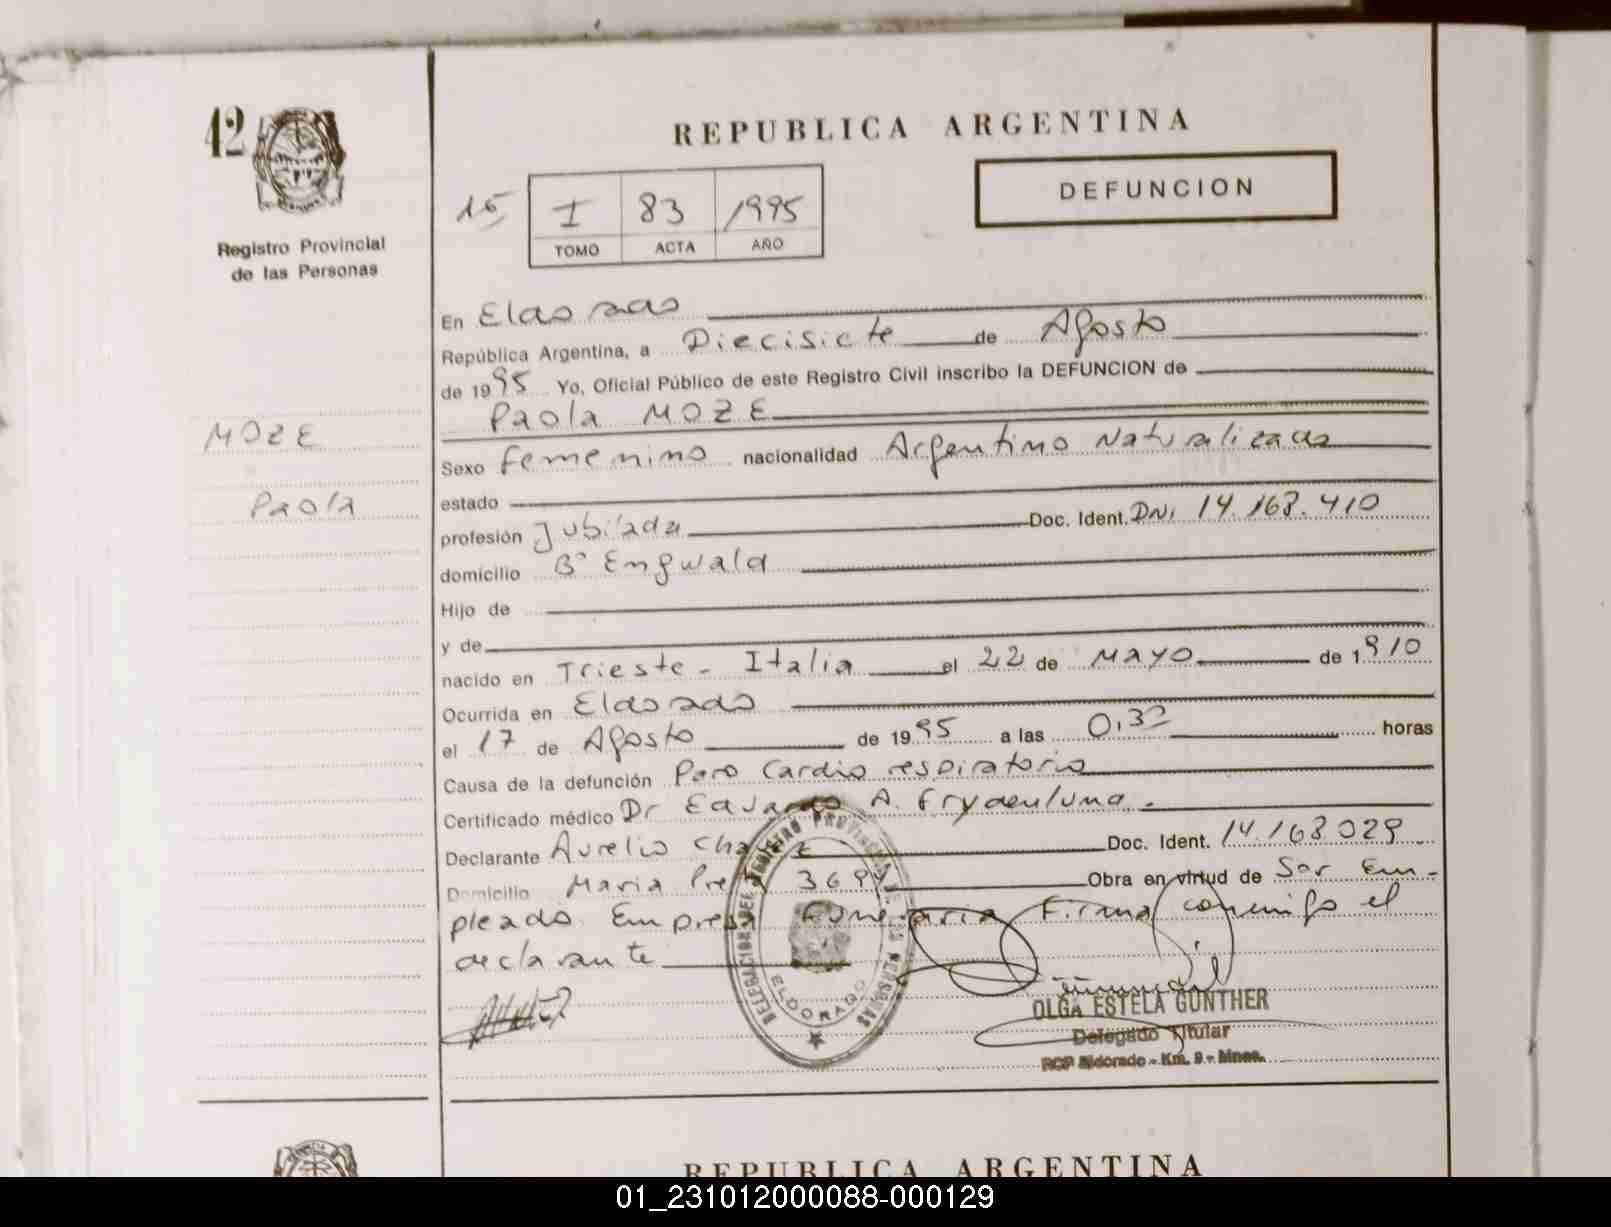 42
REPUBLICA ARGENTINA
DEFUNCION
15 I 83 1995
TOMO ACTA AÑO
Registro Provincial
de las Personas
MOZE
Paola
En Eldorado
República Argentina, a Diecisiete de Agosto
de 1995 Yo, Oficial Público de este Registro Civil inscribo la DEFUNCION de
Paola MOZE
Sexo femenino nacionalidad Argentino Naturalizada
estado
profesión Jubilada Doc. Ident. DNI 14.168.410
domicilio B° Engwald
Hijo de
y de
nacido en Trieste - Italia el 22 de MAYO de 1910
Ocurrida en Eldorado
el 17 de Agosto de 1995 a las 0,30 horas
Causa de la defunción Paro Cardio respiratorio
Certificado médico Dr Eduardo A.
Declarante Aurelio Doc. Ident. 14.168.029
Domicilio Maria Obra en virtud de Ser Em-
pleado Empresa Funeraria Firma conmigo el
declarante
DELEGACION DEL REGISTRO PROVINCIAL DE LAS PERSONAS
ELDORADO
OLGA ESTELA GUNTHER
Delegado Titular
RCP Eldorado - Km. 9 - Mnes.
REPUBLICA ARGENTINA
01_231012000088-000129